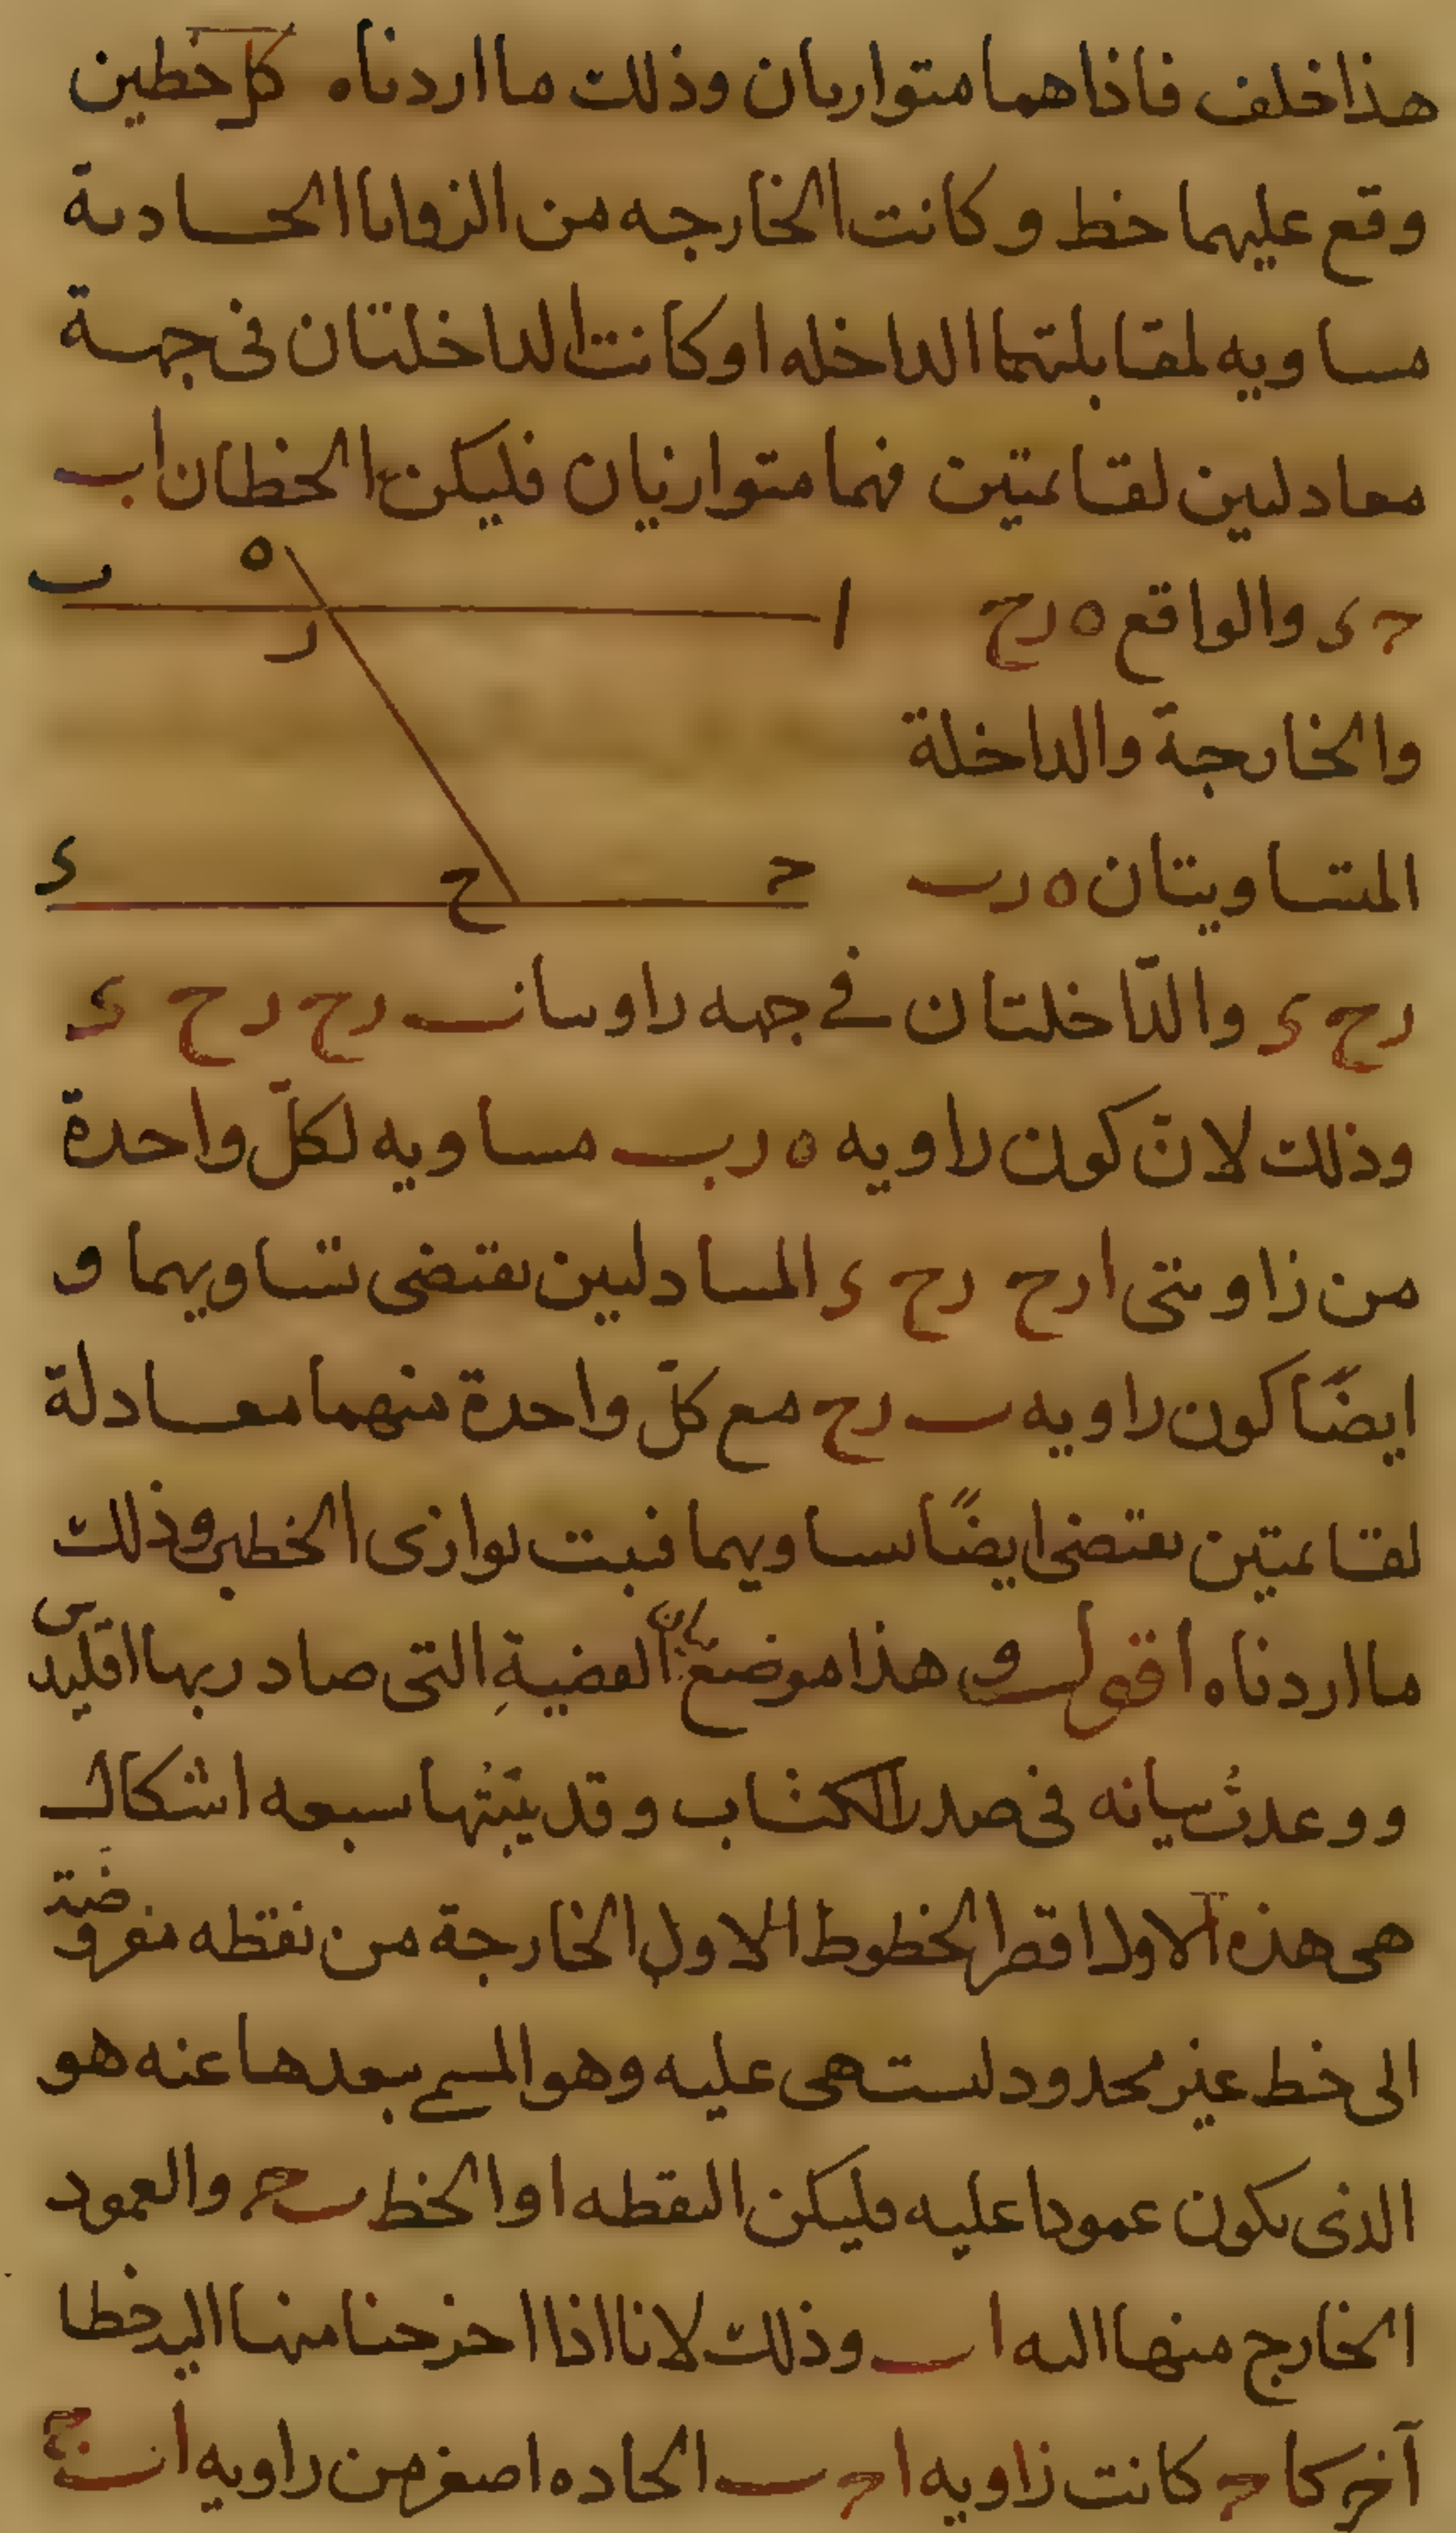 هذا خلف فاذا هما متوازيان وذلك ما اردناه كح كل خطين
وقع عليهما خط وكانت الخارجه من الزوايا الحادثة
مساويه لمقابلتها الداخله او كانت الداخلتان فى جهة
معادلتين لقائمتين فهما متوازيان فليكن الخطان اب
حد والواقع ه رح
والخارجة والداخلة
المتساويتان ه رب
رح د والداخلتان فى جهه زاويتا ب رح رح د
وذلك لانّ كون زاويه ه رب مساويه لكلّ واحدة
من زاويتى ارح رح د المتبادلتين يقتضى تساويهما و
ايضًا كون زاويه ب رح مع كلّ واحدة منهما معادلة
لقائمتين يقتضى ايضًا تساويهما فثبت توازى الخطين وذلك
ما اردناه اقول و هذا موضع بيان القضيةِ التى صادر بها اقليدس
ووعدتُ بيانه فى صدر الكتاب وقد بيّنتُها سبعه اشكال
هى هذه ا الاول اقصر الخطوط الاول الخارجة من نقطه مفروضة
الى خط غير محدود ليست هى عليه وهو المسمى ببعدها عنه هو
الذى يكون عمودا عليه فليكن النقطه ا والخط ب ح والعمود
الخارج منها اليه اب وذلك لانا اذا اخرجنا منها اليه خطا
آخر كا ح كانت زاويه ا ح ب الحاده اصغر من زاويه ا ب ح
ا
ه
ب
ر
ح
ح
د